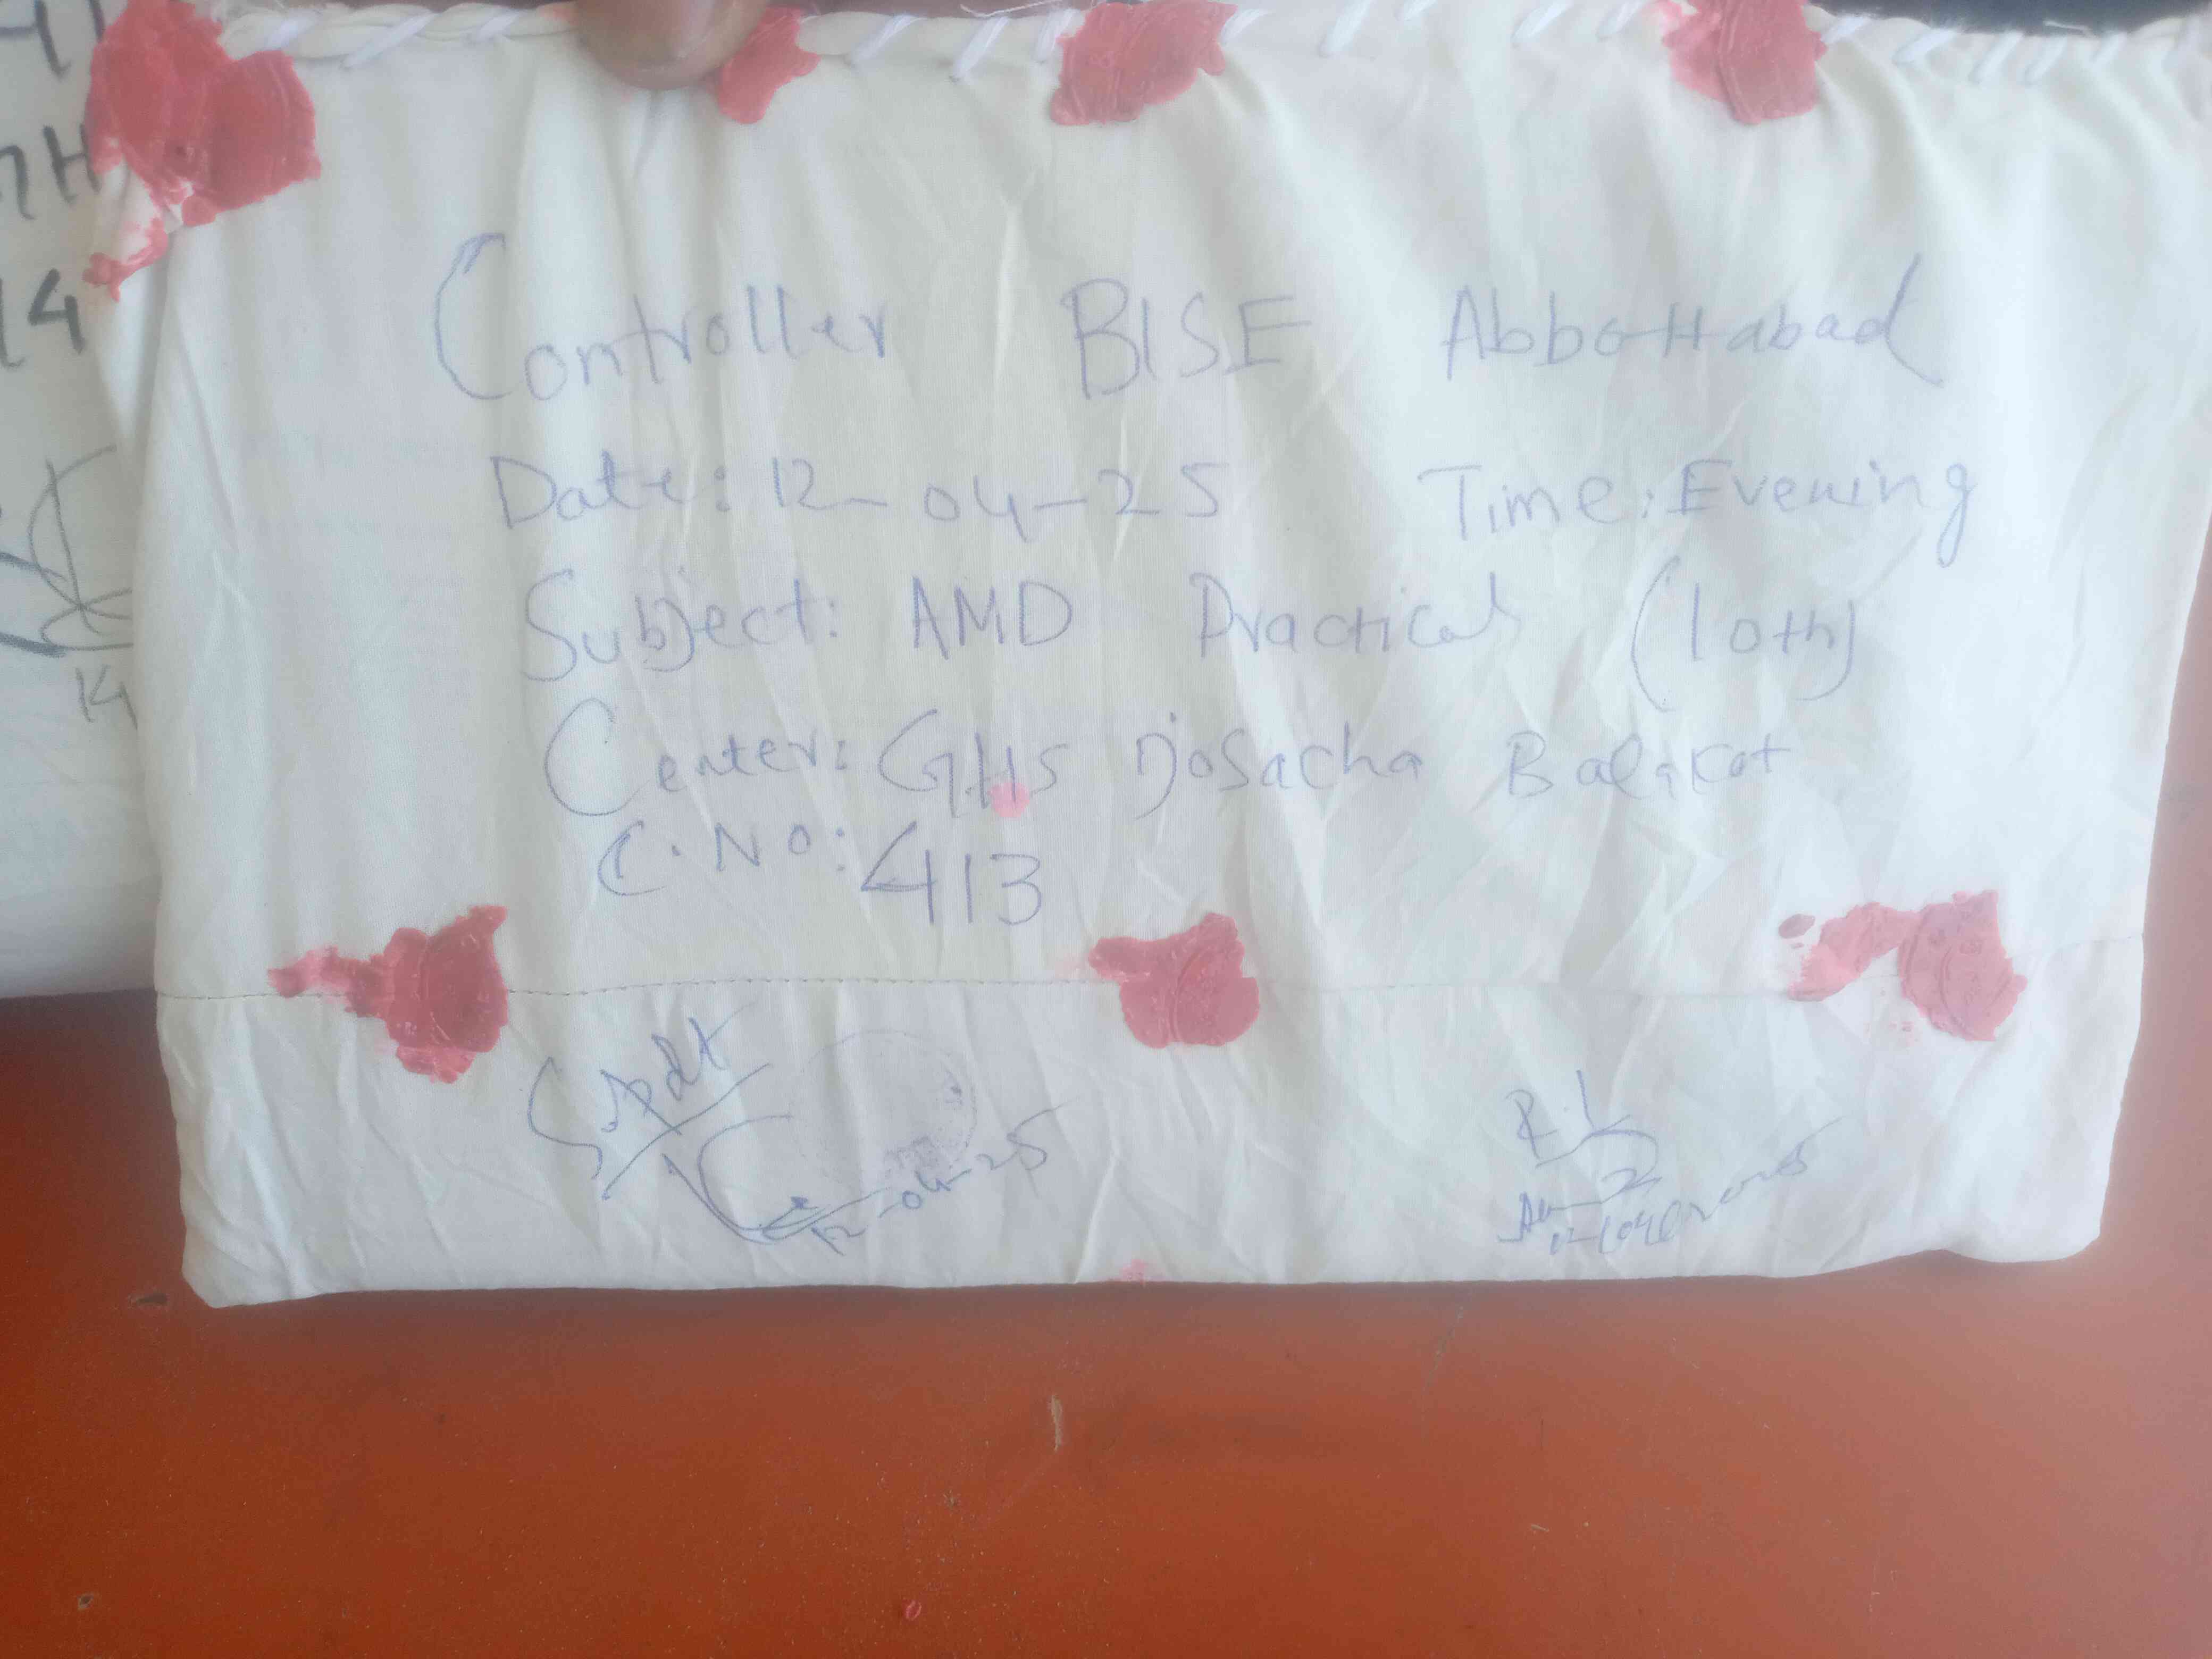 Controller BISE Abbottabad
Date: 12-04-25 Time: Evening
Subject: AMD Practical (10th)
Center: GHS Dosacha Balakot
C.No: 413
Spdt
12-04-25
R.I
14